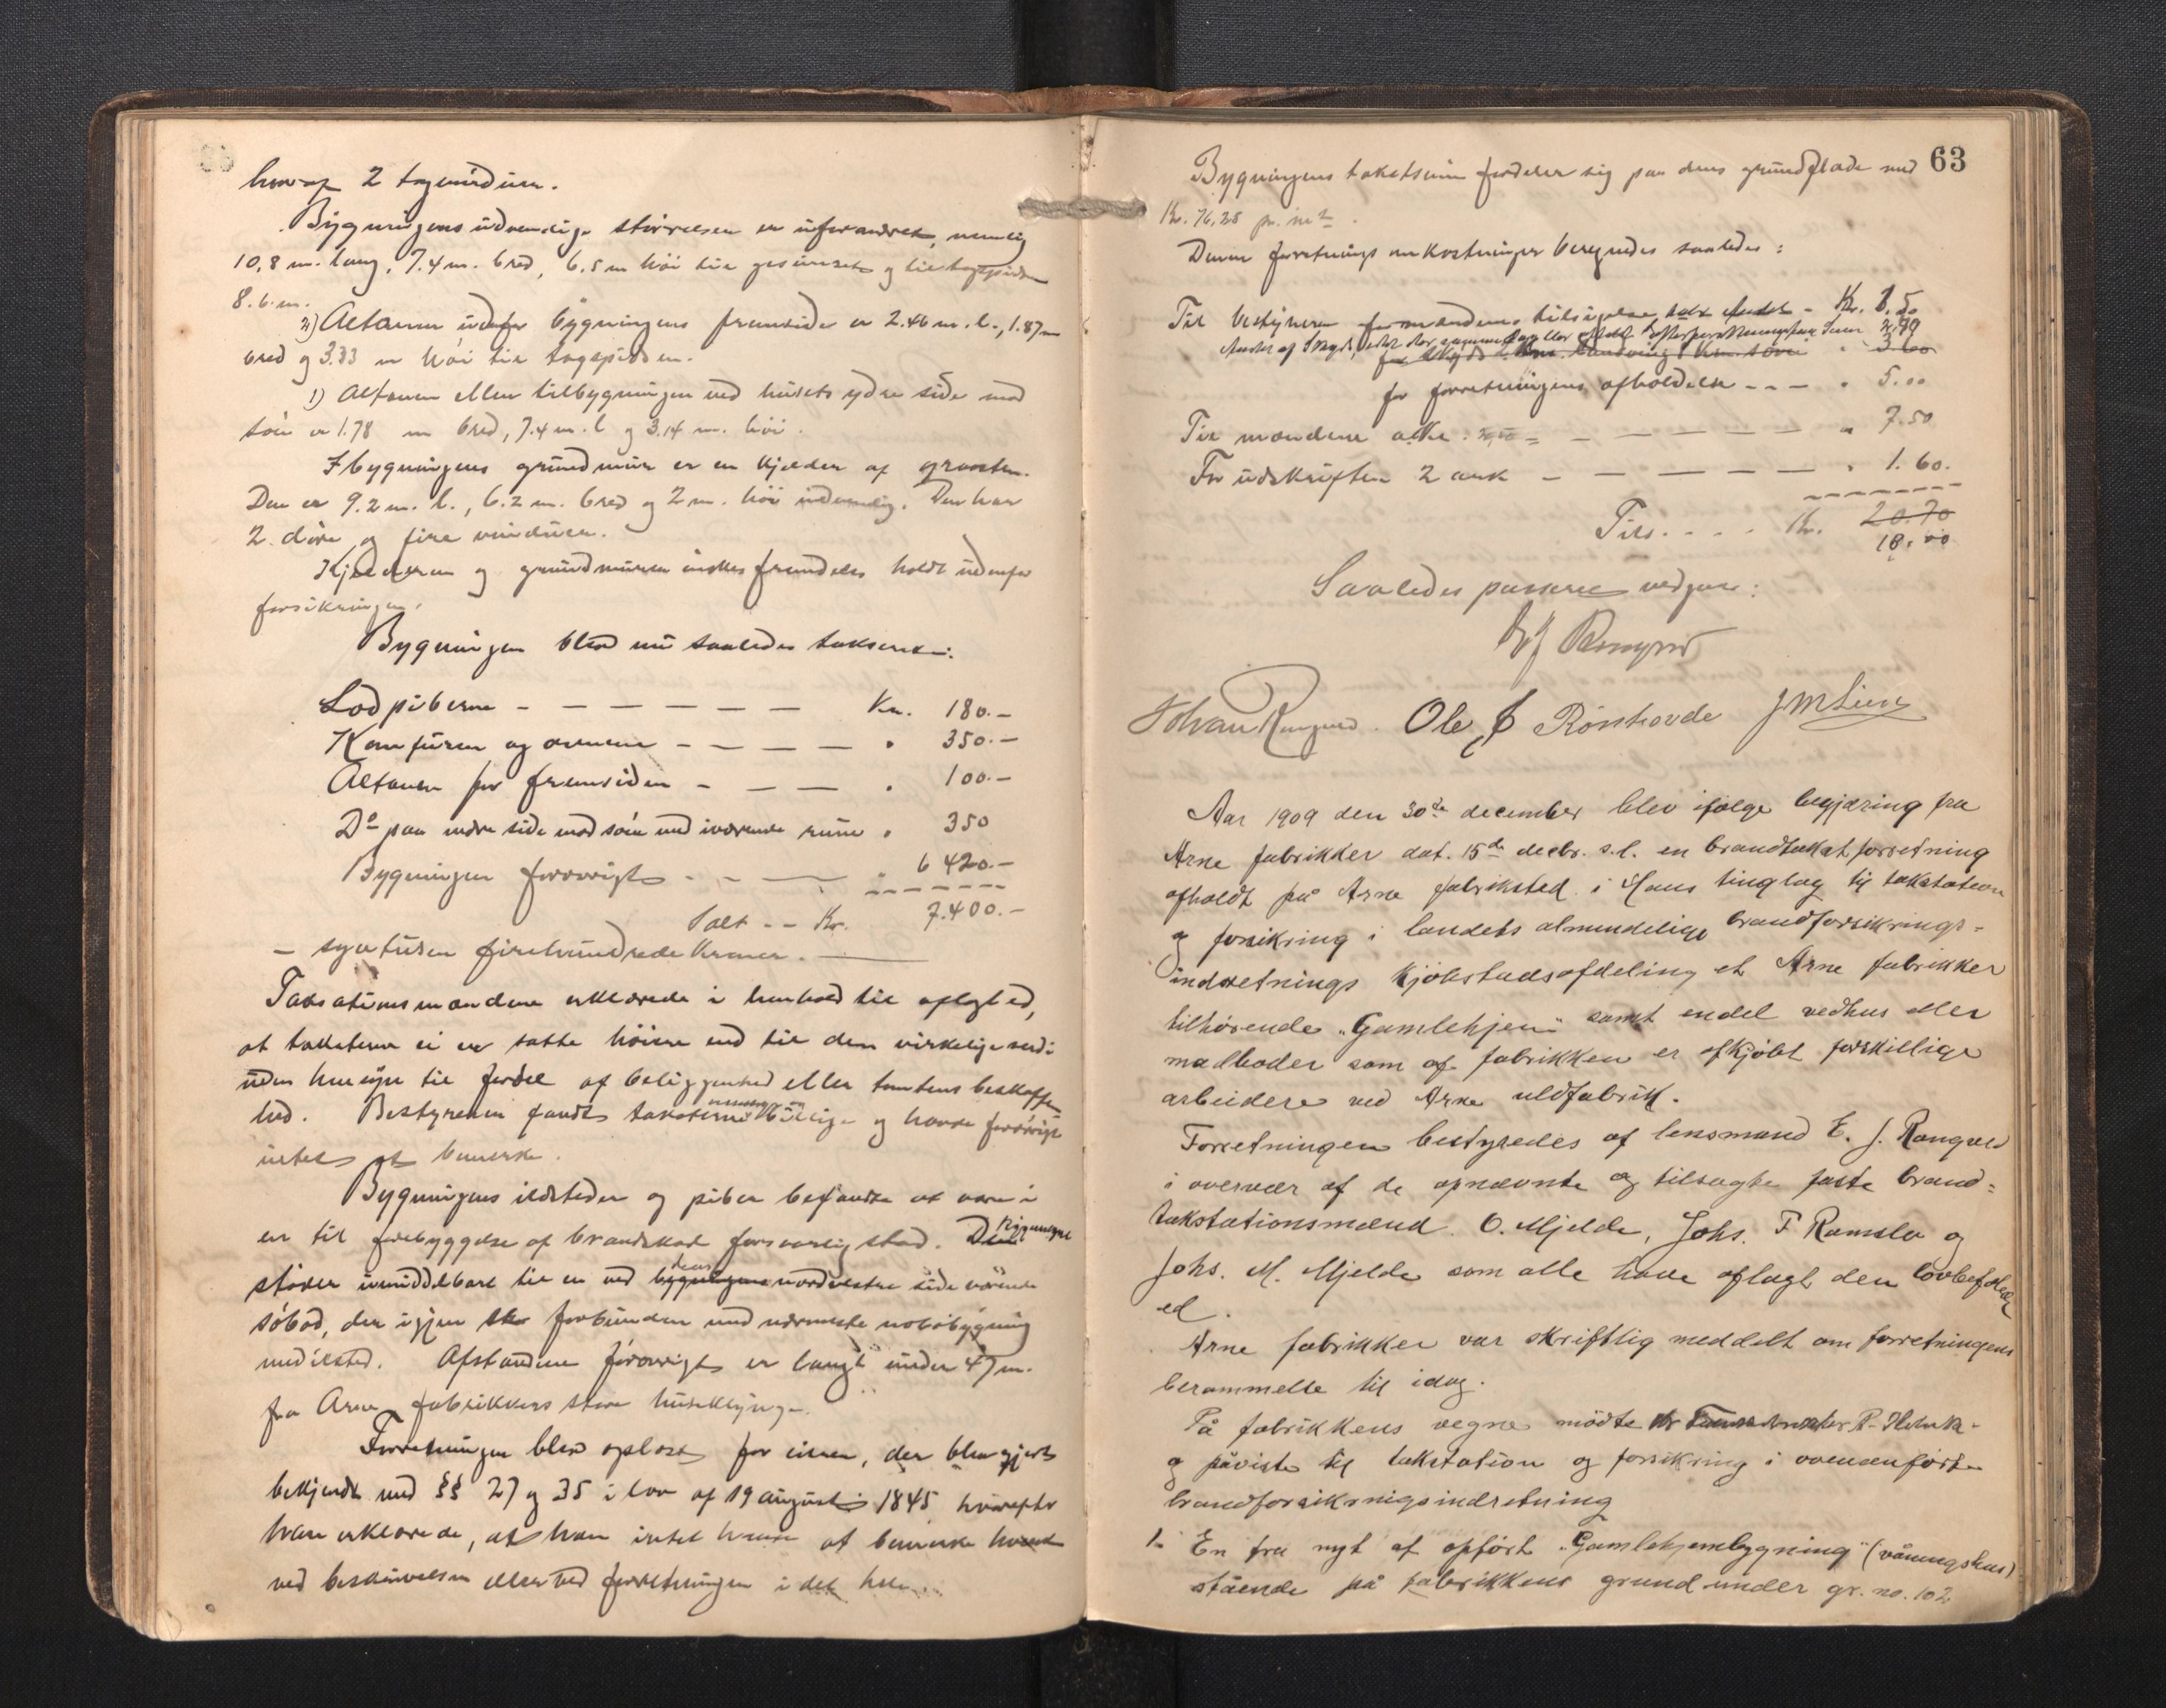 hvoraf 2 tagvinduer.
Bygningens udvendige størrelse er uforandret, nemlig
10,8 m. lang, 7.4 m. bred, 6.5 m høi til gesimset og til tagspidsen
8.6 m.
2) Altanen udenfor bygningens fremside er 2.46 m. l., 1.87 m
bred og 3.33 m høi til tagspidsen.
1) Altanen eller tilbygningen ved husets ydre side mod
søen er 1.78 m bred, 7.4 m. l og 3.14 m. høi.
I bygningens grundmur er en kjælder af graasten.
Den er 9.2 m. l., 6.2 m. bred og 2 m. høi indvendig. Den har
2 døre og fire vinduer.
Kjælderen og grundmuren ønskes fremdeles holdt udenfor
forsikringen.
Bygningen blev nu saaledes takseret:
Lodpiberne - - - - - - - Kr. 180.-
Komfuren og ovnene - - - - - " 350.-
Altanen for fremsiden - - - - " 100.-
Do paa nedre side mod søen med iværende rum " 350
Bygningen forøvrigt - - - " 6 420.-
Ialt - - Kr. 7.400.-
- syvtusen firehundrede kroner.
Taksationsmændene erklærede i henhold til aflagt ed,
at taksterne ei er satte høiere end til den virkelige værdi
uden hensyn til fordel af beliggenhed eller tomtens beskaffen
hed. Bestyreren fandt taksterne billige og havde forøvrigt
intet at bemerke.
Bygningens ildsteder og piber befandtes at være i
en til forebyggelse af brandskade forsvarlig stand. Den Bygningen
støder umiddelbart til en ved dens bygningens nordvestre side værende
søbod, der igjen er forbunden med nærmeste nabobygning
nedisted. Afstanden forøvrigt er langt under 47 m.
fra Arne fabrikkers store huseklynge.
Forretningen blev oplæst for eieren, der blev gjort
bekjendt med §§ 27 og 35 i lov af 19 august 1845 hvorefter
han erklærede, at han intet havde at bemerke hverken
ved beskrivelsen eller ved forretningen i det hele.
63
Bygningens takstsum fordeler sig paa dens grundflade med
Kr. 76,28 pr. m2.
Denne forretnings omkostninger beregnedes saaledes:
Til bestyreren for mændenes tilsigelse - Kr. 1.50
for forretningens afholdelse - - - " 5.00
Til mændene alle - - - - - - " 7.50
For udskriften 2 ark - - - - - - " 1.60.
Tils. - - - Kr. 20.70
18.00
Saaledes passeret vedgaar:
Johan Rangved. Ole J Rönhovde J M Lien
Aar 1909 den 30de december blev ifølge begjæring fra
Arne fabrikker dat. 15de decbr. s.l. en brandtakstforretning
afholdt på Arne fabriksted i Haus tinglag til takstation
og forsikring i landets almindelige brandforsikrings-
indretnings kjøbstadsafdeling et Arne fabrikker
tilhørende "Gamlehjem" samt endel vedhus eller
madboder som af fabrikken er afkjøbt forskillige
arbeidere ved Arne uldfabrik.
Forretningen bestyredes af lensmand E. J. Rangved
i overvær af de opnævnte og tilsagte faste brand-
takstationsmænd O. Mjelde, Johs. F Ramslo og
Johs. M. Mjelde som alle have aflagt den lovbefalede
ed.
Arne fabrikker var skriftlig meddelt om forretningens
berammelse til idag.
På fabrikkens vegne mødte
og påviste til takstation og forsikring i ovenanførte
brandforsikringsindretning
1. En fra nyt af opført "Gamlehjembygning" (våningshus)
stående på fabrikkens grund under gr. no. 102